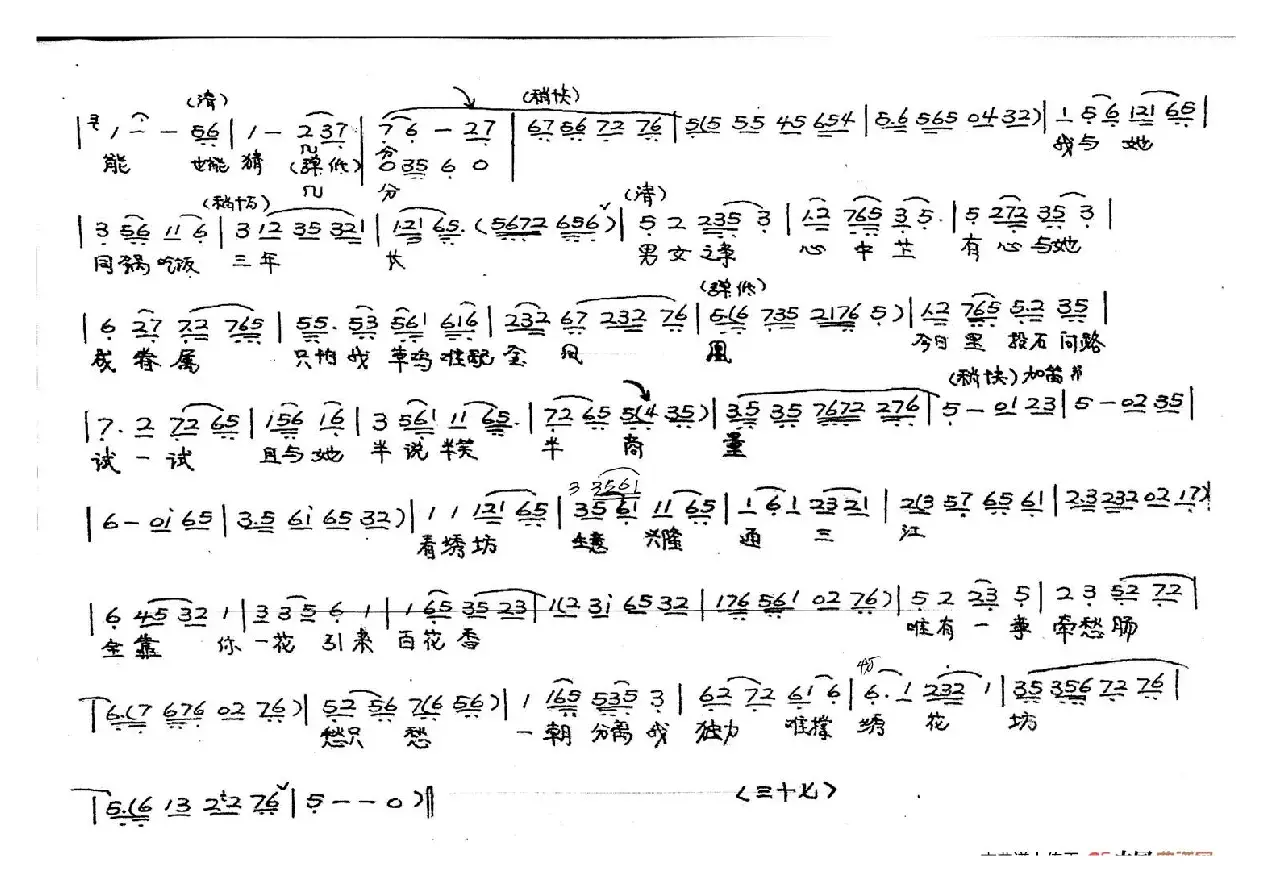 (清) (稍快)
| 1 - - 56 | 1 - 2 37 | 7 6 - 27 | 67 56 72 76 | 5(5 55 45 654 | 5.6 565 04 32) | 1 56 121 65 |
能 也能 猜 (弹低) 分 035 6 0 我与 她
分
(清)
| 3 56 11 6 | 3 12 35 321 | 121 65. (5672 656) | 5 2 235 3 | 12 765 3 5. | 5 272 35 3 |
同锅吃饭 三年 长 男女之事 心中芷 有心与她
(弹低)
| 6 27 72 765 | 55. 53 561 616 | 232 67 232 76 | 5(6 735 2176 5) | 12 765 52 35 |
成眷属 只怕我 草鸡难配 金凤 凰 今日里 投石问路
(稍快) 加笛
| 7. 2 72 65 | 156 16 | 3 561 11 65. | 72 65 5(4 35) | 35 35 7672 276 | 5 - 01 23 | 5 - 02 35 |
试一试 且与她 半说半笑 半商 量
3 3561
| 6 - 01 65 | 3.5 61 65 32) | 1 1 121 65 | 35 61 11 65 | 1 6 1 23 21 | 2(3 57 65 61 | 2.3 232 02 17) |
看绣坊 生意 兴隆 通三 江
| 6 45 32 1 | 3 35 6 1 | 1 65 35 23 | 1(2 31 65 32 | 176 561 02 76) | 5 2 23 5 | 2 3 52 72 |
全靠 你一花 引来 百花香 唯有一事 牵愁肠
| 6.(7 676 02 76) | 52 56 7(6 56) | 1 165 535 3 | 62 72 61 6 | 6. 1 232 1 | 35 356 72 76 |
愁只愁 一朝分离我 独力 难撑 绣花 坊
5.(6 13 22 76 | 5 - - 0) ‖ <三十七>